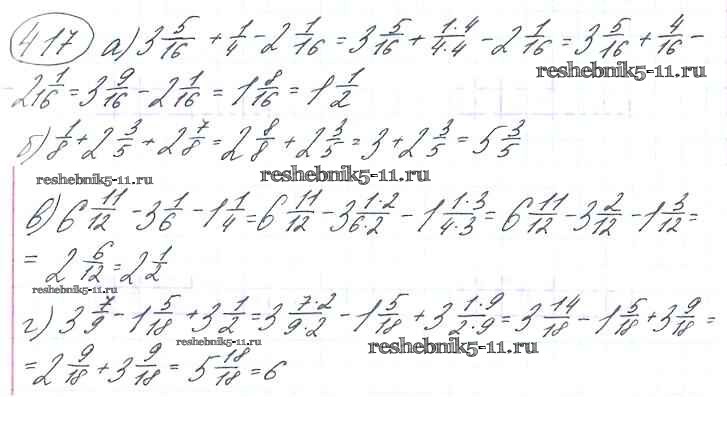 417 а) 3 5/16 + 1/4 - 2 1/16 = 3 5/16 + 1·4/4·4 - 2 1/16 = 3 5/16 + 4/16 -
reshebnik5-11.ru
2 1/16 = 3 9/16 - 2 1/16 = 1 8/16 = 1 1/2
б) 1/8 + 2 3/5 + 2 7/8 = 2 8/8 + 2 3/5 = 3 + 2 3/5 = 5 3/5
reshebnik5-11.ru reshebnik5-11.ru
в) 6 11/12 - 3 1/6 - 1 1/4 = 6 11/12 - 3 1·2/6·2 - 1 1·3/4·3 = 6 11/12 - 3 2/12 - 1 3/12 =
= 2 6/12 = 2 1/2
reshebnik5-11.ru
г) 3 7/9 - 1 5/18 + 3 1/2 = 3 7·2/9·2 - 1 5/18 + 3 1·9/2·9 = 3 14/18 - 1 5/18 + 3 9/18 =
reshebnik5-11.ru reshebnik5-11.ru
= 2 9/18 + 3 9/18 = 5 18/18 = 6